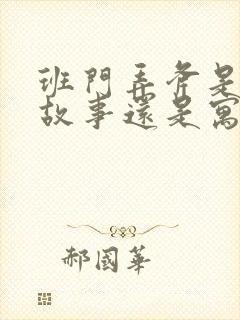 班門弄斧是
故事還是寓
郝國華